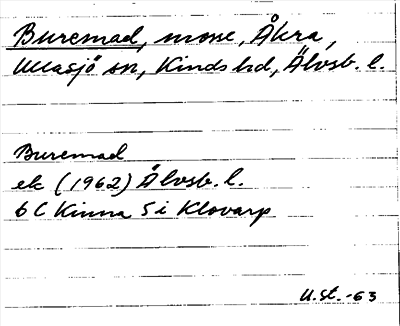 Buremad, mosse, Åkra,
Ullasjö sn, Kinds hd, Älvsb. l.
Buremad
ek (1962) Älvsb. l.
6 C Kinna 5 i Klovarp
U.St. -63